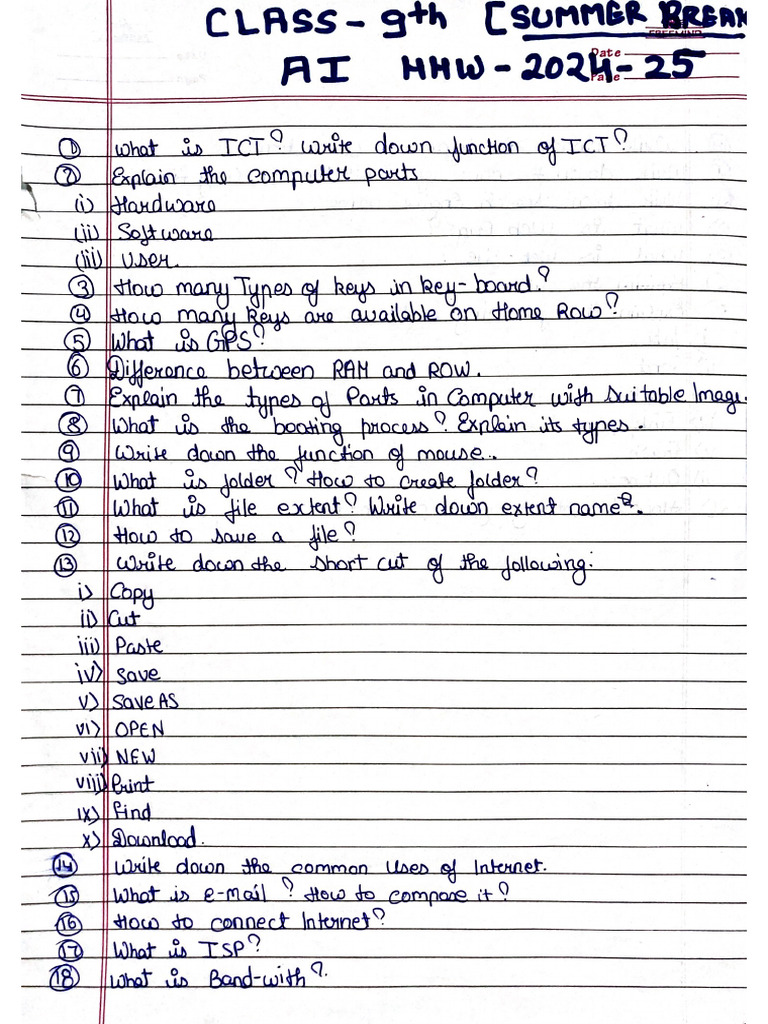 CLASS - 9th [SUMMER BREAK
Date
AI HHW - 2024-25
① What is ICT? Write down function of ICT?
② Explain the computer parts
(i) Hardware
(ii) Software
(iii) User.
③ How many Types of keys in key-board?
④ How many keys are available on Home Row?
⑤ What is GPS?
⑥ Difference between RAM and ROW.
⑦ Explain the types of Parts in Computer with suitable Image.
⑧ What is the booting process? Explain its types.
⑨ Write down the function of mouse.
⑩ What is folder? How to create folder?
⑪ What is file extent? Write down extent name.
⑫ How to save a file?
⑬ Write down the short cut of the following:
i) Copy
ii) Cut
iii) Paste
iv) Save
v) Save AS
vi) OPEN
vii) NEW
viii) Print
ix) Find
x) Download.
⑭ Write down the common Uses of Internet.
⑮ What is e-mail? How to compose it?
⑯ How to connect Internet?
⑰ What is ISP?
⑱ What is Band-with?